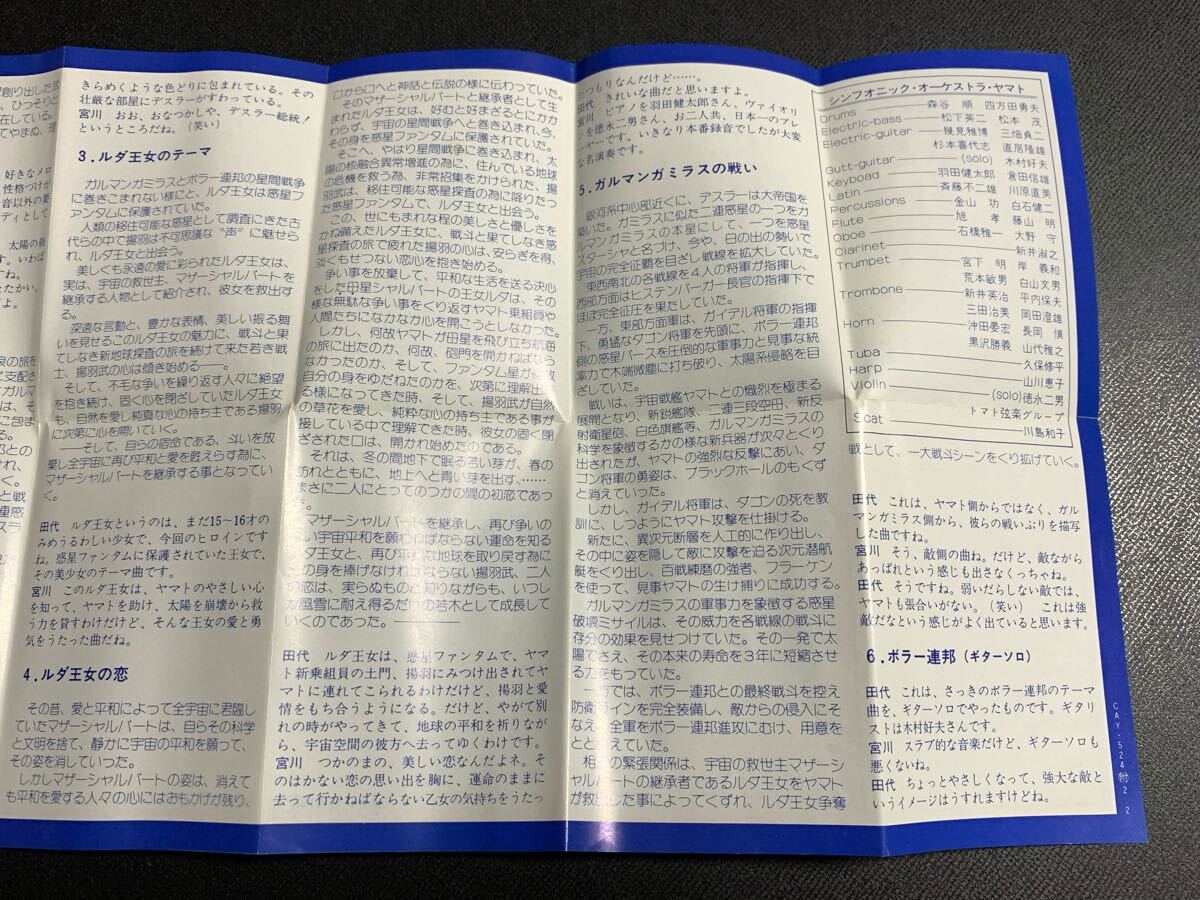 創り出した
ひっそりと
在している。
好きなメロ
性格づけが
音以外の要
ディとして
太陽の
いわば
たかい。
よ。
の旅を
に支配さ
ガルマ
は、そ
に包ま
との
く。
と戦
連感
スラ
きらめくような色どりに包まれている。その
壮厳な部屋にデスラーがすわっている。
宮川 おお、おなつかしや、デスラー総統!
というところだね。(笑い)
3.ルダ王女のテーマ
ガルマンガミラスとボラー連邦の星間戦争
に巻きこまれない様にと、ルダ王女は惑星フ
ァンタムに保護されていた。
人類の移住可能な惑星として調査にきた古
代らの中で揚羽は不可思議な“声”に魅せら
れ、ルダ王女と出会う。
美しくも永遠の愛に彩られたルダ王女は、
実は、宇宙の救世主、マザーシャルバートを
継承する人物として紹介され、彼女を救出す
る。
深遠な言動と、豊かな表情、美しい振る舞
いを見せるこのルダ王女の魅力に、戦斗と果
てしなき新地球探査の旅を続けて来た若き戦
士、揚羽武の心は傾き始める――。
そして、不毛な争いを繰り返す人々に絶望
を抱き続け、固く心を閉ざしていたルダ王女
も、自然を愛し純真な心の持ち主である揚羽
に次第に心を開いていく。
――そして、自らの宿命である、斗いを放
棄し全宇宙に再び平和と愛を甦えらす為に、
マザーシャルバートを継承する事となってい
く。
田代 ルダ王女というのは、まだ15〜16才の
みめうるわしい少女で、今回のヒロインです
ね。惑星ファンタムに保護されていた王女で、
その美少女のテーマ曲です。
宮川 このルダ王女は、ヤマトのやさしい心
を知って、ヤマトを助け、太陽を崩壊から救
う力を貸すわけだけど、そんな王女の愛と勇
気をうたった曲だね。
4.ルダ王女の恋
その昔、愛と平和によって全宇宙に君臨し
ていたマザーシャルバートは、自らその科学
と文明を捨て、静かに宇宙の平和を願って、
その姿を消していった。
しかしマザーシャルバートの姿は、消えて
も平和を愛する人々の心にはおもかげが残り、
口から口へと神話と伝説の様に伝わっていた。
そのマザーシャルバートと継承者として生
まれたルダ王女は、好むと好まざるとにかか
わらず、宇宙の星間戦争へと巻き込まれ、今、
その身を惑星ファンタムに保護されていた。
そこへ、やはり星間戦争に巻き込まれ、太
陽の核融合異常増進の為に、住んでいる地球
の危機を救う為、非常招集をかけられた、揚
羽武は、移住可能な惑星探査の為に降りたっ
た惑星ファンタムで、ルダ王女と出会う。
この、世にもまれな程の美しさと優しさを
かね備えたルダ王女に、戦斗と果てしなき惑
星探査の旅で疲れた揚羽の心は、安らぎを得、
淡くもせつない恋心を抱き始める。
争い事を放棄して、平和な生活を送る決心
をした母星シャルバートの王女ルダは、その
様な無駄な争い事をくり返すヤマト乗組員や
人間たちになかなか心を開こうとしなかった。
しかし、何故ヤマトが母星を飛び立ち航海
の旅に出たのか、何故、砲門を開かねばなら
なかったのか、そして、ファンタム星が何故
自分の身をゆだねたのかを、次第に理解出来
る様になってきた時、そして、揚羽武が自然
の草花を愛し、純粋な心の持ち主である事が
接している中で理解できた時、彼女の固く閉
ざされた口は、開かれ始めたのである。
それは、冬の間地下で眠る若い芽が、春の
訪れとともに、地上へと青い身を出す、……
まさに二人にとってのつかの間の初恋であっ
た。
マザーシャルバートを継承し、再び争いの
ない宇宙平和を願わねばならない運命を知る
ルダ王女と、再び平和な地球を取り戻す為に
その身を捧げなければならない揚羽武、二人
の恋は、実らぬものと知りながらも、いつし
か風雪に耐え得るだけの若木として成長して
いくのであった。――――
田代 ルダ王女は、惑星ファンタムで、ヤマ
ト新乗組員の土門、揚羽にみつけ出されてヤ
マトに連れてこられるわけだけど、揚羽と愛
情をもち合うようになる。だけど、やがて別
れの時がやってきて、地球の平和を祈りなが
ら、宇宙空間の彼方へ去ってゆくわけです。
宮川 つかのまの、美しい恋なんだよネ。そ
のはかない恋の思い出を胸に、運命のままに
去って行かねばならない乙女の気持ちをうたっ
たつもりなんだけど……。
田代 きれいな曲だと思いますよ。
宮川 ピアノを羽田健太郎さん、ヴァイオリ
ンを徳永二男さん、お二人共、日本一のプレ
ーヤーです。いきなり本番録音でしたが大変
な名演奏です。
5.ガルマンガミラスの戦い
銀河系中心部近くに、デスラーは大帝国を
築いた。ガミラスに似た二連惑星の一つをガ
ルマンガミラスの本星にして、一つを惑星
スターシャと名づけ、今や、日の出の勢いで
宇宙の完全征覇を目ざし戦線を拡大していた。
東西南北の各戦線を4人の将軍が指揮し、
西部方面はヒステンバーガー長官の指揮下で
ほぼ完全征圧を果たしていた。
一方、東部方面軍は、ガイデル将軍の指揮
下、勇猛なダゴン将軍を先頭に、ボラー連邦
側の惑星バースを圧倒的な軍事力と見事な統
率力で木端微塵に打ち破り、太陽系侵略を目
ざしていた。
戦いは、宇宙戦艦ヤマトとの熾烈を極まる
展開となり、新鋭戦隊、二連三段空母、新反
射衛星砲、白色旗艦等、ガルマンガミラスの
科学を象徴するかの様な新兵器が次々とくり
出されたが、ヤマトの強烈な反撃にあい、ダ
ゴン将軍の勇姿は、ブラックホールのもくず
と消えていった。
しかし、ガイデル将軍は、ダゴンの死を教
訓に、しつようにヤマト攻撃を仕掛ける。
新たに、異次元断層を人工的に作り出し、
その中に姿を隠して敵に攻撃を迫る次元潜航
艇をくり出し、百戦練磨の強者、フラーケン
を使って、見事ヤマトの生け捕りに成功する。
ガルマンガミラスの軍事力を象徴する惑星
破壊ミサイルは、その威力を各戦線の戦斗に
存分の効果を見せつけていた。その一発で太
陽でさえ、その本来の寿命を3年に短縮させ
る力をもっていた。
一方では、ボラー連邦との最終戦斗を控え
防衛ラインを完全装備し、敵からの侵入にそ
なえ、全軍をボラー連邦進攻にむけ、用意を
ととのえていた。
相互の緊張関係は、宇宙の救世主マザーシ
ャルバートの継承者であるルダ王女をヤマト
が救出した事によってくずれ、ルダ王女争奪
シンフォニック・オーケストラ・ヤマト
Drums――――森谷 順 四方田勇夫
Electric-bass――松下英二 松本 茂
Electric-guitar――幾見雅博 三畑貞二
杉本喜代志 直居隆雄
Gutt-guitar――――(solo) 木村好夫
Keyboad――――羽田健太郎 倉田信雄
Latin――――斉藤不二雄 川原直美
Percussions――――金山 功 白石健二
Flute――――旭 孝 藤山 明
Oboe――――石橋雅一 大野 守
Clarinet――――新井淑之
Trumpet――――宮下 明 岸 義和
荒本敏男 白山文男
Trombone――――新井英治 平内保夫
三田治美 岡田澄雄
Horn――――沖田晏宏 長岡 慎
黒沢勝義 山代雅之
Tuba――――久保修平
Harp――――山川恵子
Violin――――(solo)徳永二男
トマト弦楽グループ
Scat――――川島和子
戦として、一大戦斗シーンをくり拡げていく。
田代 これは、ヤマト側からではなく、ガル
マンガミラス側から、彼らの戦いぶりを描写
した曲ですね。
宮川 そう、敵側の曲ね。だけど、敵ながら
あっぱれという感じも出さなくっちゃね。
田代 そうですね。弱いだらしない敵では、
ヤマトも張合いがない。(笑い) これは強
敵だなという感じがよく出ていると思います。
6.ボラー連邦(ギターソロ)
田代 これは、さっきのボラー連邦のテーマ
曲を、ギターソロでやったものです。ギタリ
ストは木村好夫さんです。
宮川 スラブ的な音楽だけど、ギターソロも
悪くないね。
田代 ちょっとやさしくなって、強大な敵と
いうイメージはうすれますけどね。
CAY-524㈹2-2